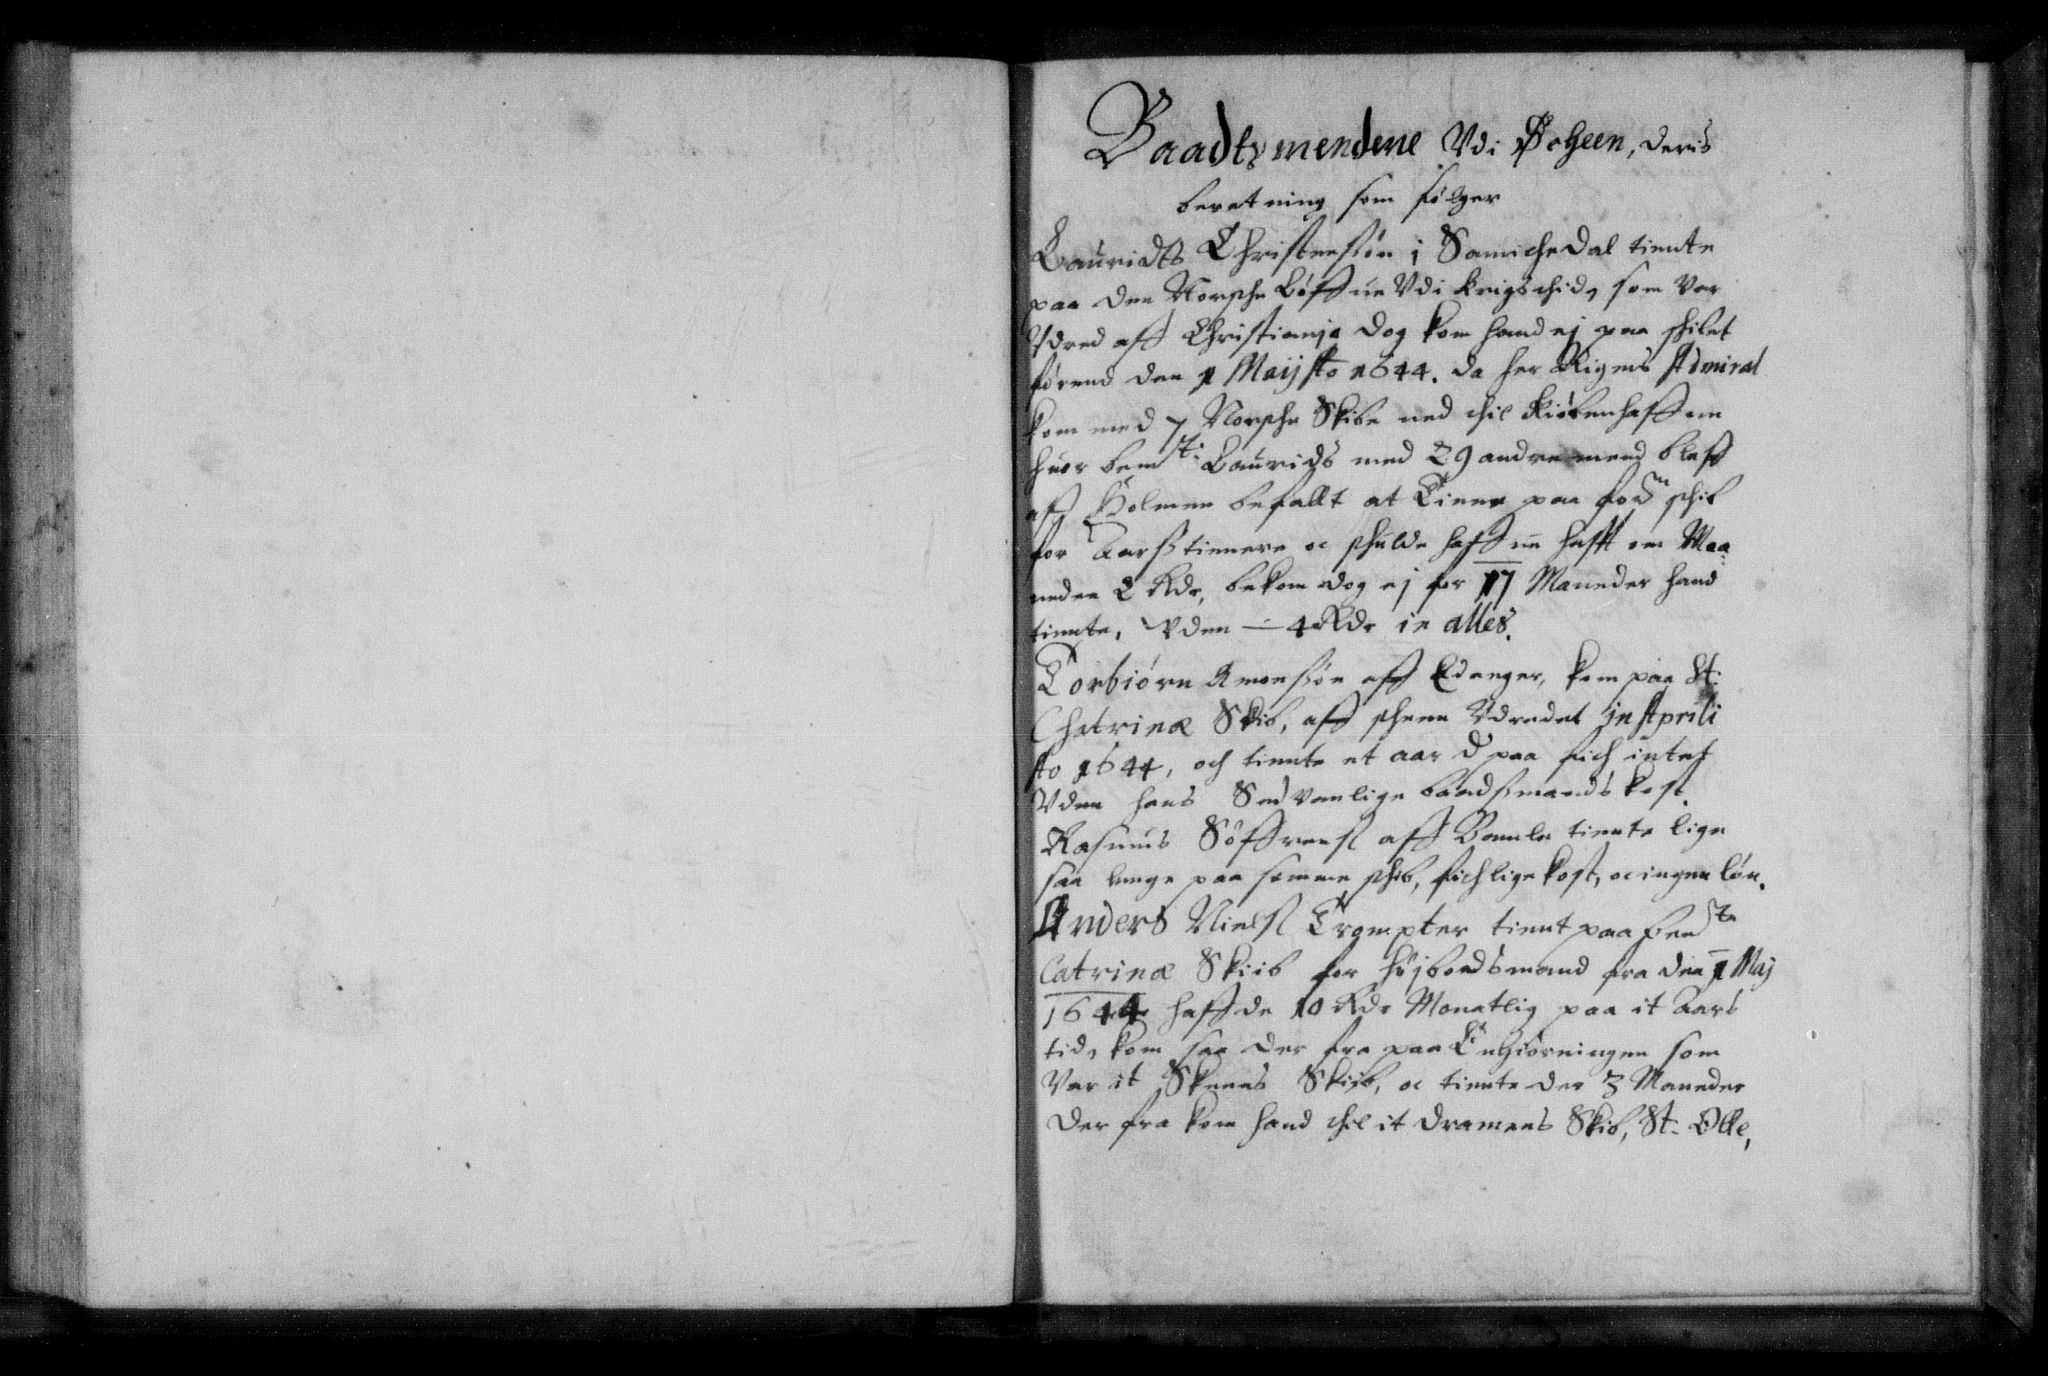 Baadtzmendene Vdi Scheen, deris
beretning som følger
Lauridts Christensøn i Sannichedal tiente
paa den Norsche Løffue Vdi krigs thid, som Var
Vdred aff Christiania dog kom hand ej paa skibet
førend den 1 Maij Ao 1644. da her Rigens Admiral
kom med 7 Norsche Skibe ned thil Kiøbenhaffuen
huor bemte: Laurids med 29 andre mend bleff
aff Holmen befallt at tiene paa fordn schib
for Aarstienere oc schulde haffue hafft om Maa
neden 8 Rdr, bekom dog ej for 17 Maneder hand
tiente, Vden 4 Rdr in alles.
Torbiørn Amonssøn aff Edanger, kom paa St:
Chatrinæ Skib, aff scheen Vdredet in Aprili
Ao 1644, och tiente et aar der paa fich intet
Vden hans Sedvanlige baadsmands kost.
Rasmus Søffrensl aff Bamle tiente lige
saa lenge paa samme schib, fich lige kost, oc ingen løn.
Anders Nielsl Trompter tient paa bemte
Catrinæ Skiib for højbodsmand fra den 1 Maj
1644 haffde 10 Rdr Monatlig paa it Aars
tid, kom saa der fra paa Enhiørningen som
Var it Skeens Skiib, oc tiente der 3 Maneder
der fra kom hand thil it dramens Skib, St. Olle,